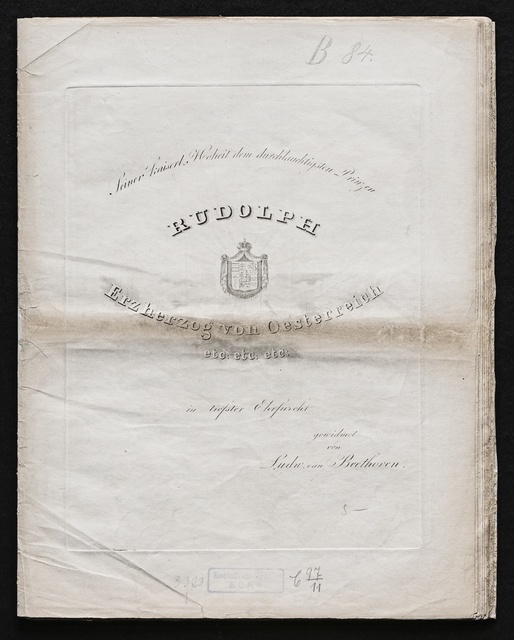 B 84.
Seiner Kaiserl. Hoheit dem durchlauchtigsten Prinzen
RUDOLPH
Erzherzog von Oesterreich
etc: etc: etc:
in tiefster Ehrfurcht
gewidmet
von
Ludw. van Beethoven.
5 —
C 97/11